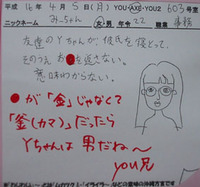 平成 16年 4月 5日(月) YOU-AXE-YOU2 603号室
ニックネーム みーちゃん 女・男 年令 22 職業 事務
友達のYちゃんが、彼氏を横どって、
そのうえ お●を返さない。
意味わからない。
●が「金」じゃなくて
「釜(カマ)」だったら
Yちゃんは男だね〜
you兄